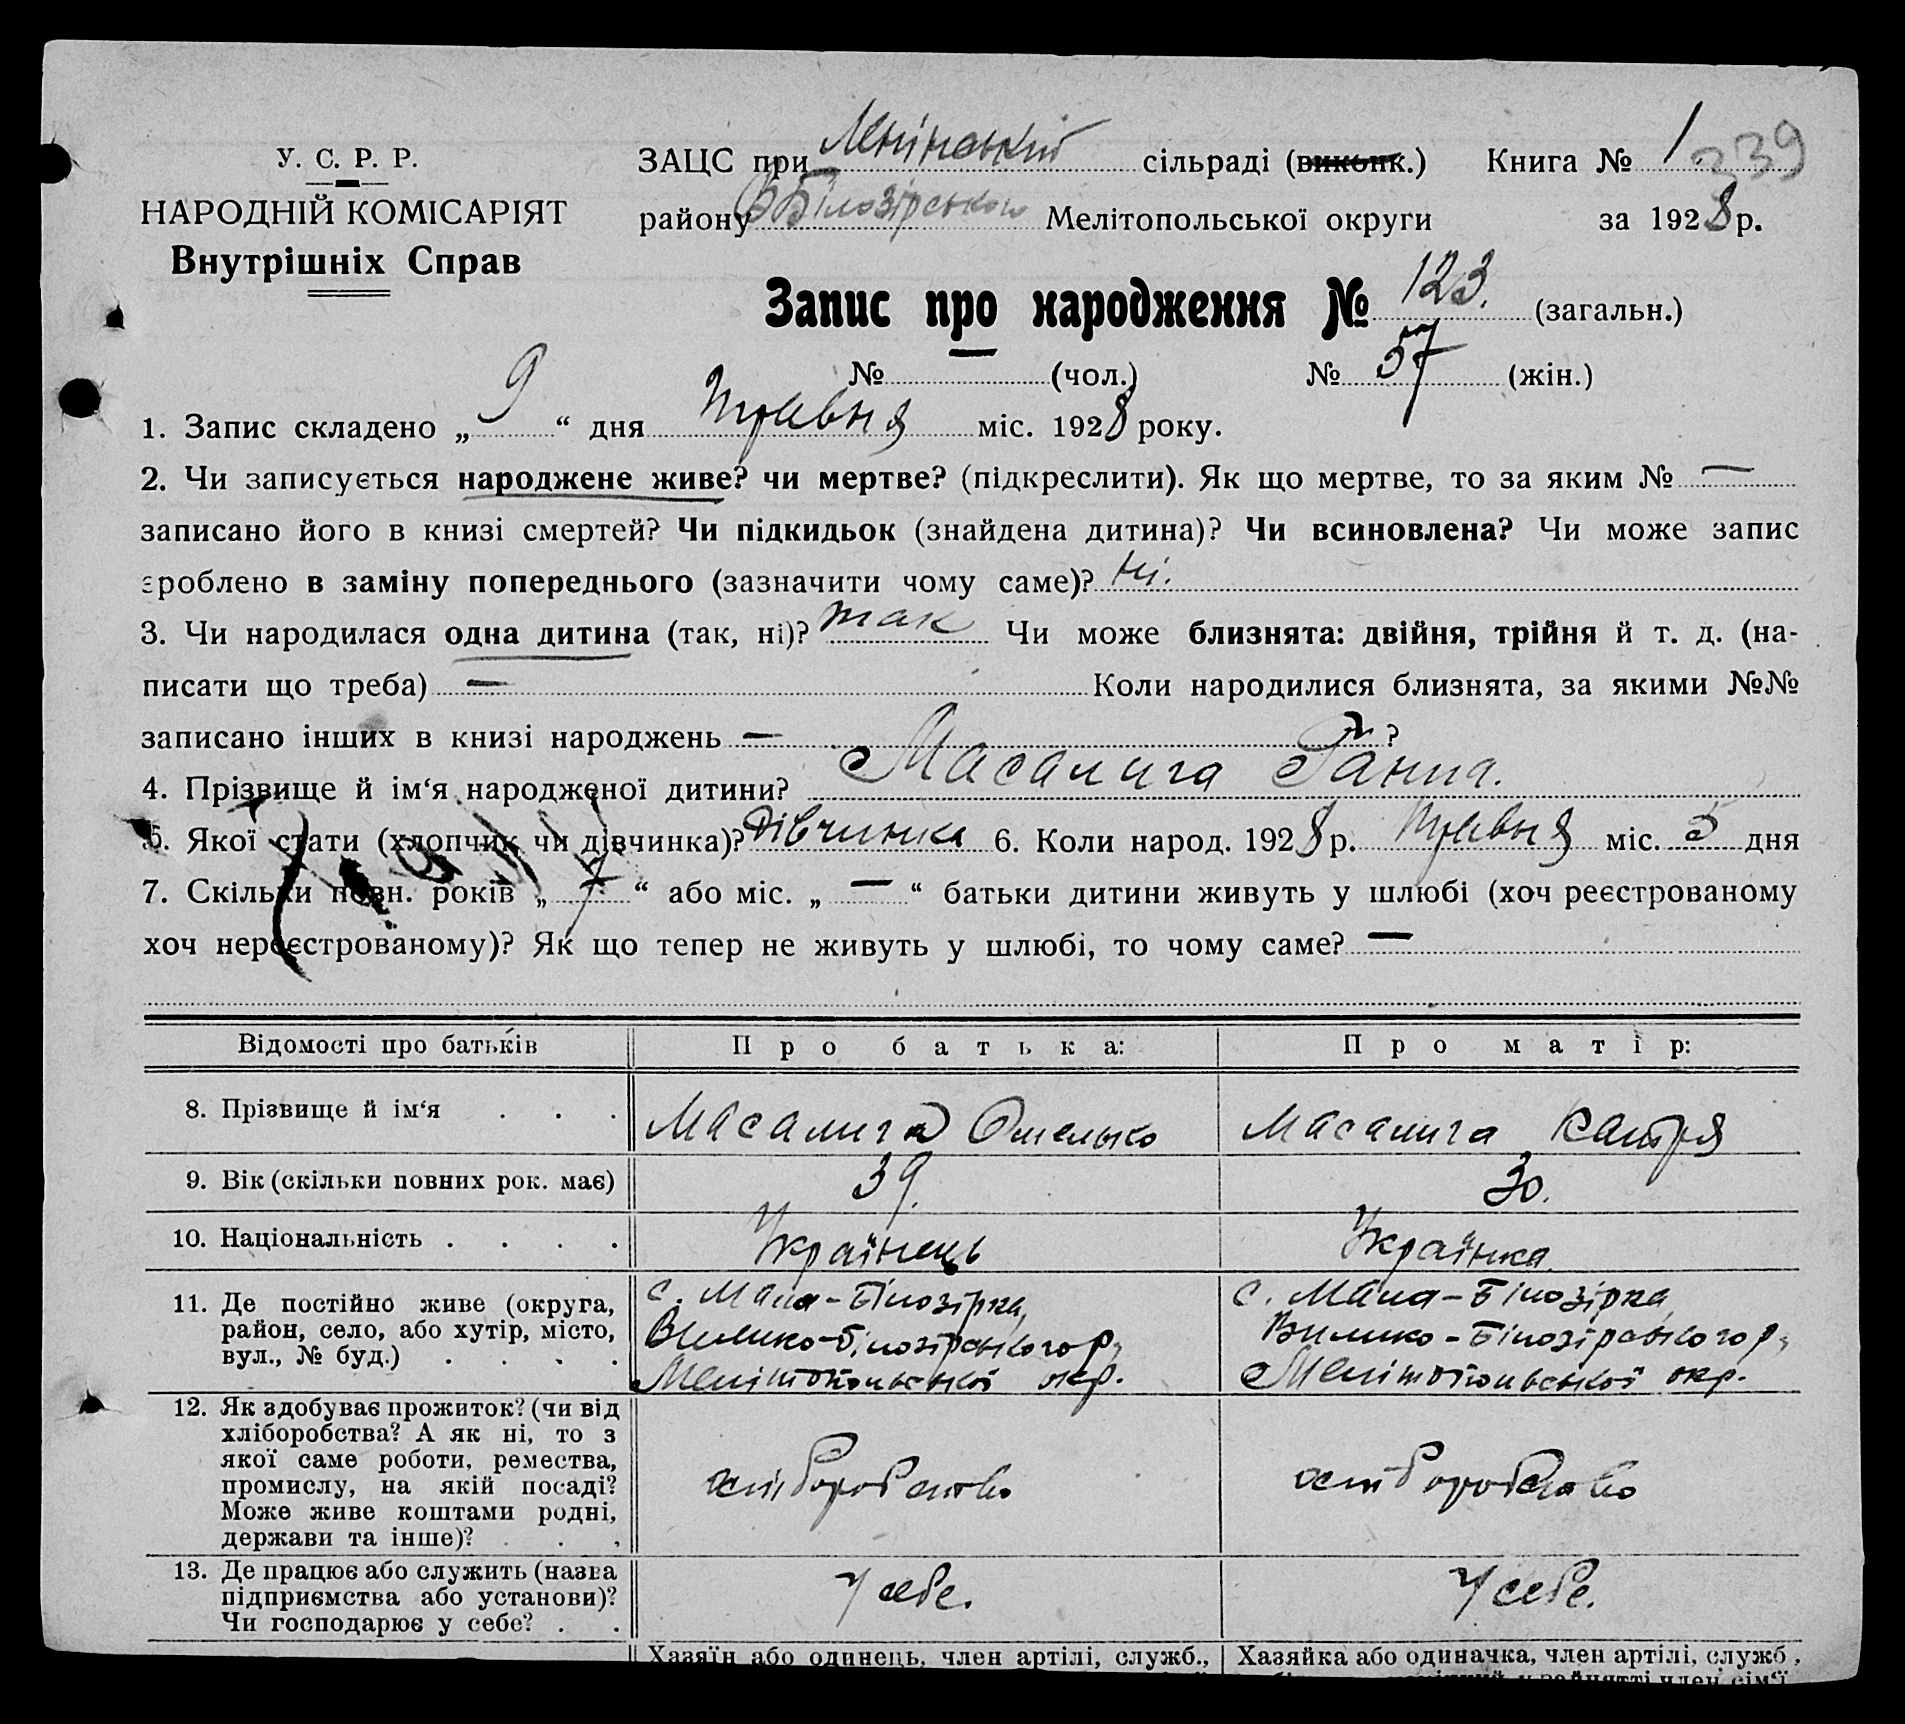 339
У. С. Р. Р.
НАРОДНІЙ КОМІСАРІЯТ
Внутрішніх Справ
ЗАЦС при Ленінській сільраді (виконк.) Книга № 1
району В Білозірського Мелітопольської округи за 1928 р.
Запис про народження № 123. (загальн.)
№ — (чол.) № 57 (жін.)
1. Запис складено „ 9 “ дня травня міс. 1928 року.
2. Чи записується народжене живе? чи мертве? (підкреслити). Як що мертве, то за яким № —
записано його в книзі смертей? Чи підкидьок (знайдена дитина)? Чи всиновлена? Чи може запис
зроблено в заміну попереднього (зазначити чому саме)? ні.
3. Чи народилася одна дитина (так, ні)? так Чи може близнята: двійня, трійня й т. д. (на-
писати що треба) — Коли народилися близнята, за якими №№
записано інших в книзі народжень — ?
4. Прізвище й ім‘я народженої дитини? Масалига Ганна.
5. Якої стати (хлопчик чи дівчинка)? Дівчинка 6. Коли народ. 1928 р. травня міс. 5 дня
7. Скільки повн. років „ 7 “ або міс. „ — “ батьки дитини живуть у шлюбі (хоч реєстрованому
хоч нереєстрованому)? Як що тепер не живуть у шлюбі, то чому саме? —
Відомості про батьків Про батька: Про матір:
8. Прізвище й ім‘я . . . Масалига Омелько Масалига Катря
9. Вік (скільки повних рок. має) 39. 30.
10. Національність . . . . Українець Українка.
11. Де постійно живе (округа, с. Мала-Білозірка, с. Мала-Білозірка
район, село, або хутір, місто, Велико-Білозірського р, Велико-Білозірського р,
вул., № буд.) . . . . Мелітопольської окр. Мелітопольської окр.
12. Як здобуває прожиток? (чи від
хліборобства? А як ні, то з
якої саме роботи, ремества, хліборобство хліборобство
промислу, на якій посаді?
Може живе коштами родні,
держави та інше)? . . .
13. Де працює або служить (назва у себе. у себе.
підприємства або установи)?
Чи господарює у себе? . .
Хазяїн або одинець, член артілі, служб., Хазяйка або одиначка, член артілі, служб,